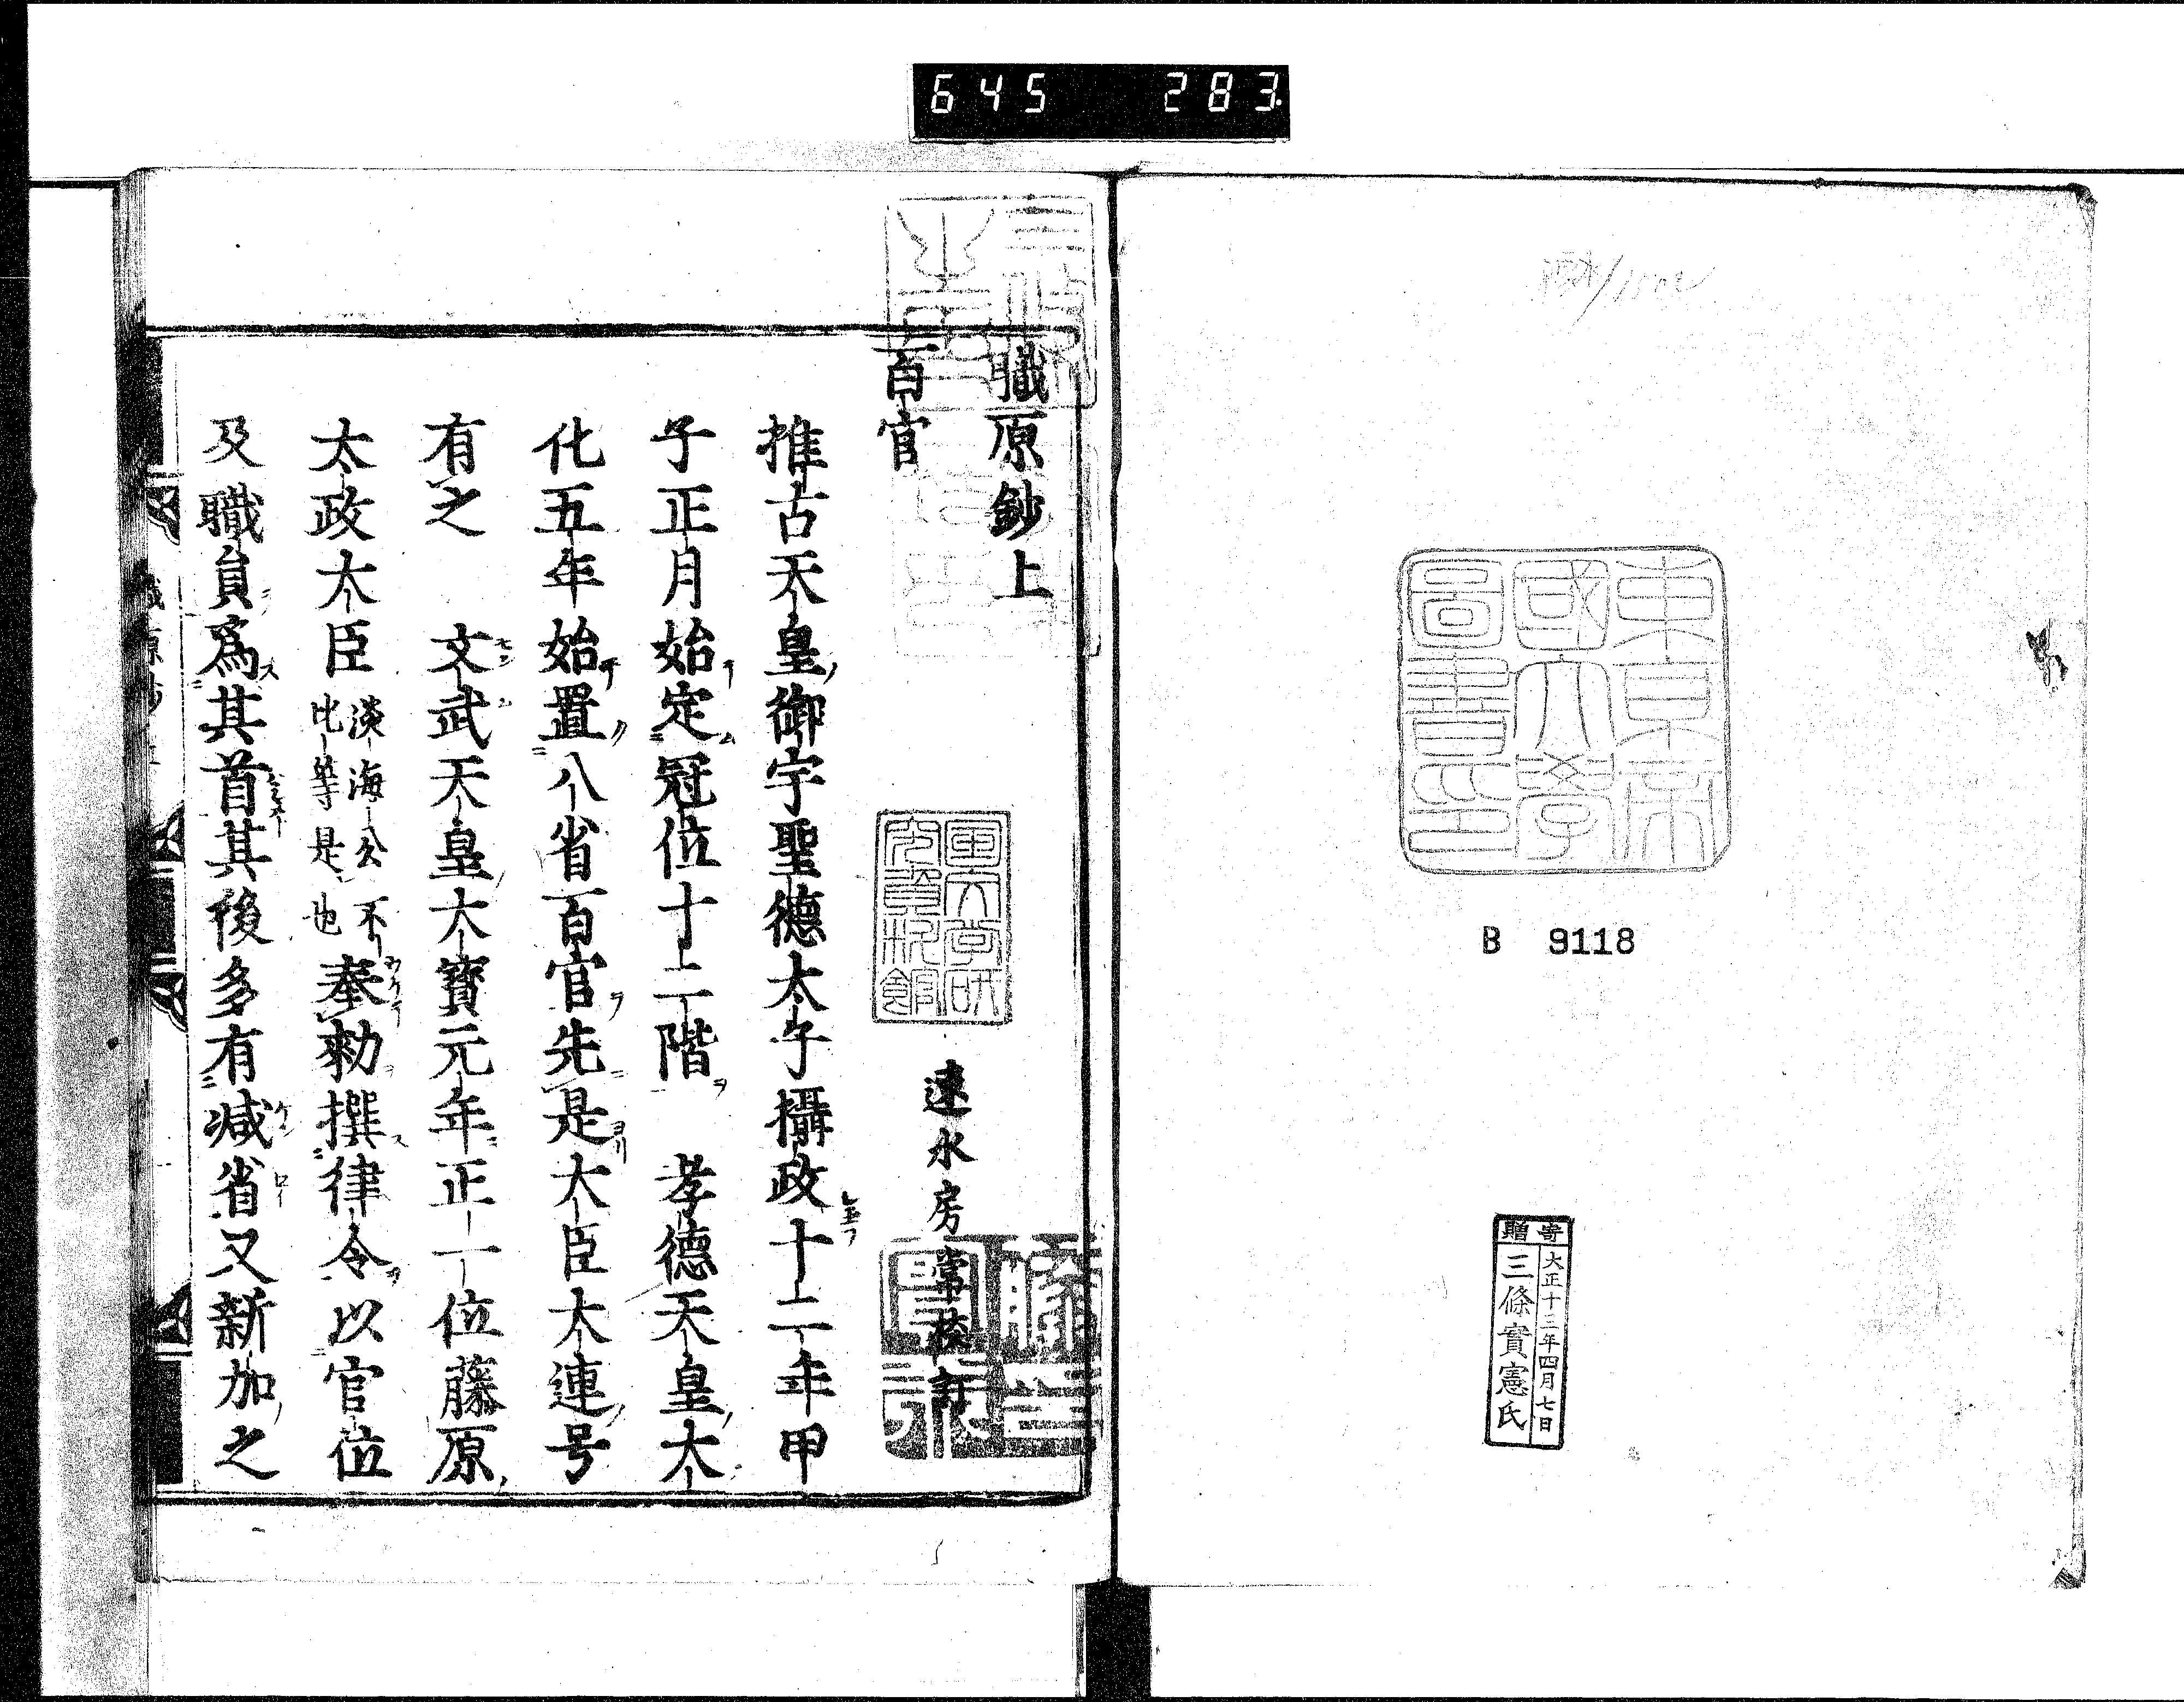 645 283
東京帝
國大學
圖書印
B 9118
寄贈
大正十二年四月七日
三條實憲氏
職原鈔上
百官
速水房常校訂
推古天皇御宇聖德太子攝政十二年甲
子正月始定冠位十二階 孝德天皇大
化五年始置八省百官先是大臣大連号
有之 文武天皇大寶元年正一位藤原
太政大臣
淡海公不
比等是也
奉勅撰律令以官位
及職員爲其首其後多有減省又新加之